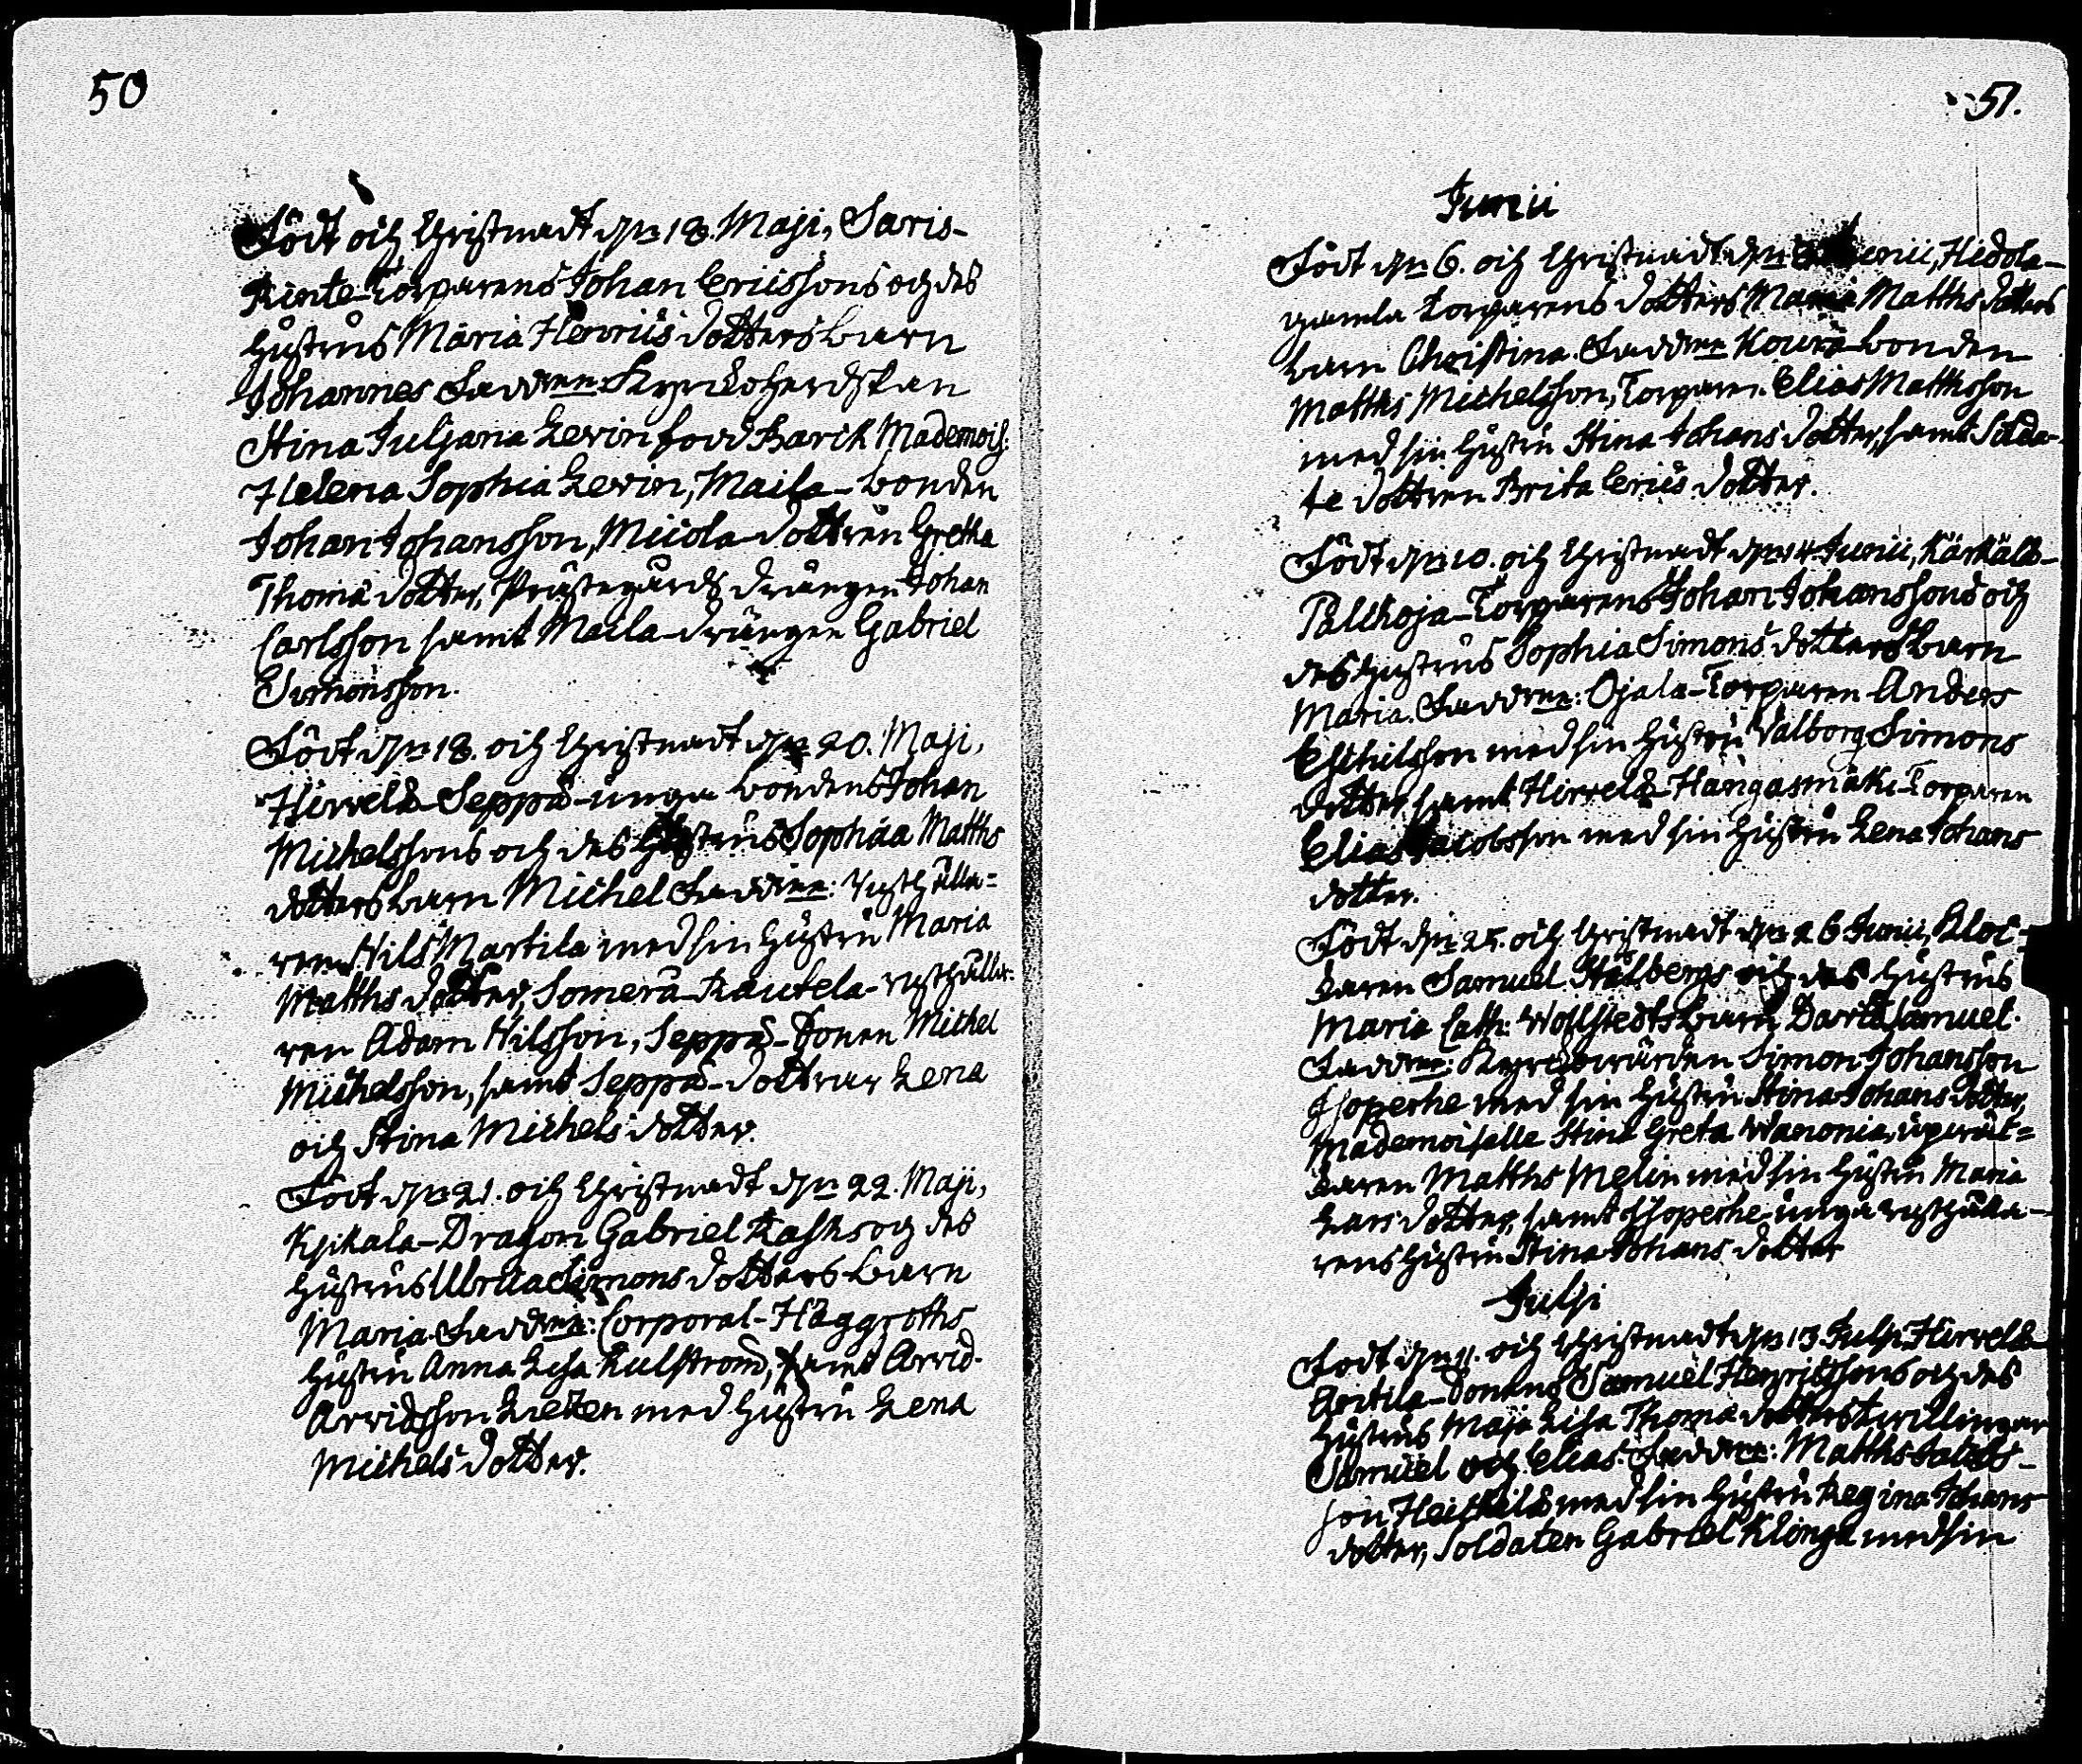 50
Födt och Christnadt dn 18. Maji, Saris-
Rinte-Torparens Johan Ericssons och des
hustrus Maria Henrics dotters barn
Johannes. Faddrne: Kyrckoherdskan
Stina Juljana Levin född Barck Mademois:
Helena Sophia Levin, Maila-bonden
Johan Johansson, Micola-dottren Gretha
Thomæ dotter, Prästegårds drängen Johan
Carlsson samt Maila-drängen Gabriel
Simonsson.
Födt dn 18. och Christnadt dn 20. Maji,
Hirvelä-Seppä-unga bondens Johan
Michelssons och des hustrus Sophiæ Matths
dotters barn Michel. Faddrne: Rusthålla=
ren Nils Martila med sin hustru Maria
Matths dotter, Somera-Rautela-rusthålla-
ren Adam Nilsson, Seppä-sonen Michel
Michelsson, samt Seppä-döttrar Lena
och Stina Michels dotter.
Födt dn 21. och Christnadt dn 22. Maji,
Kjikala-Dragon Gabriel Rasks och des
hustrus Ulrica Simons dotters barn
Maria. Faddrne: Corporal-Häggroths
hustru Anna Lisa Kulström, samt Arvid
Arvidsson Lieten med hustru Lena
Michels dotter.
51.
Junii
Födt dn 6. och Christnadt dn Junii, Hidola-
gamla Torparens dotters Maria Matths dotters
barn Christina. Faddrne Kouvo-bonden
Matths Michelsson, Torparen Elias Matthsson
med sin hustru Stina Johans dotter, samt Solda-
te dottren Brita Erics dotter.
Födt dn 10. och Christnadt dn 14 Junii, Kärkälä-
Palikoja-Torparens Johan Johanssons och
des hustrus Sophia Simons dotters barn
Maria. Faddrne: Ojala-Torparen Anders
Eschilsson med sin hustru Valborg Simons
dotter samt Hirvelä-Hangasmäki-Torparen
Elias Jacobsson med sin hustru Lena Johans
dotter.
Födt dn 25. och Christnadt dn 26 Junii, Kloc=
karen Samuel Stålbergs och des hustrus
Maria Cath: Wollstedts barn David Samuel.
Faddrne: Kyrckowärden Simon Johansson
Isoperhe med sin hustru Stina Johans dotter,
Mademoiselle Stina Greta Wanonia, upwäc=
karen Matths Melin med sin hustru Maria
Lars dotter, samt Isoperhe-unga rusthålla-
rens hustru Stina Johans dotter
Julji
Födt dn 11. och Christnadt dn 13 Julji Hirvelä
Anttila-sonens Samuel Henricssons och des
hustrus Maja Lisa Thomæ dotters twillingar
Samuel och Elias. Faddrne: Matths Jacobs-
son Heickilä med sin hustru Regina Johans
dotter, Soldaten Gabriel Klinga med sin